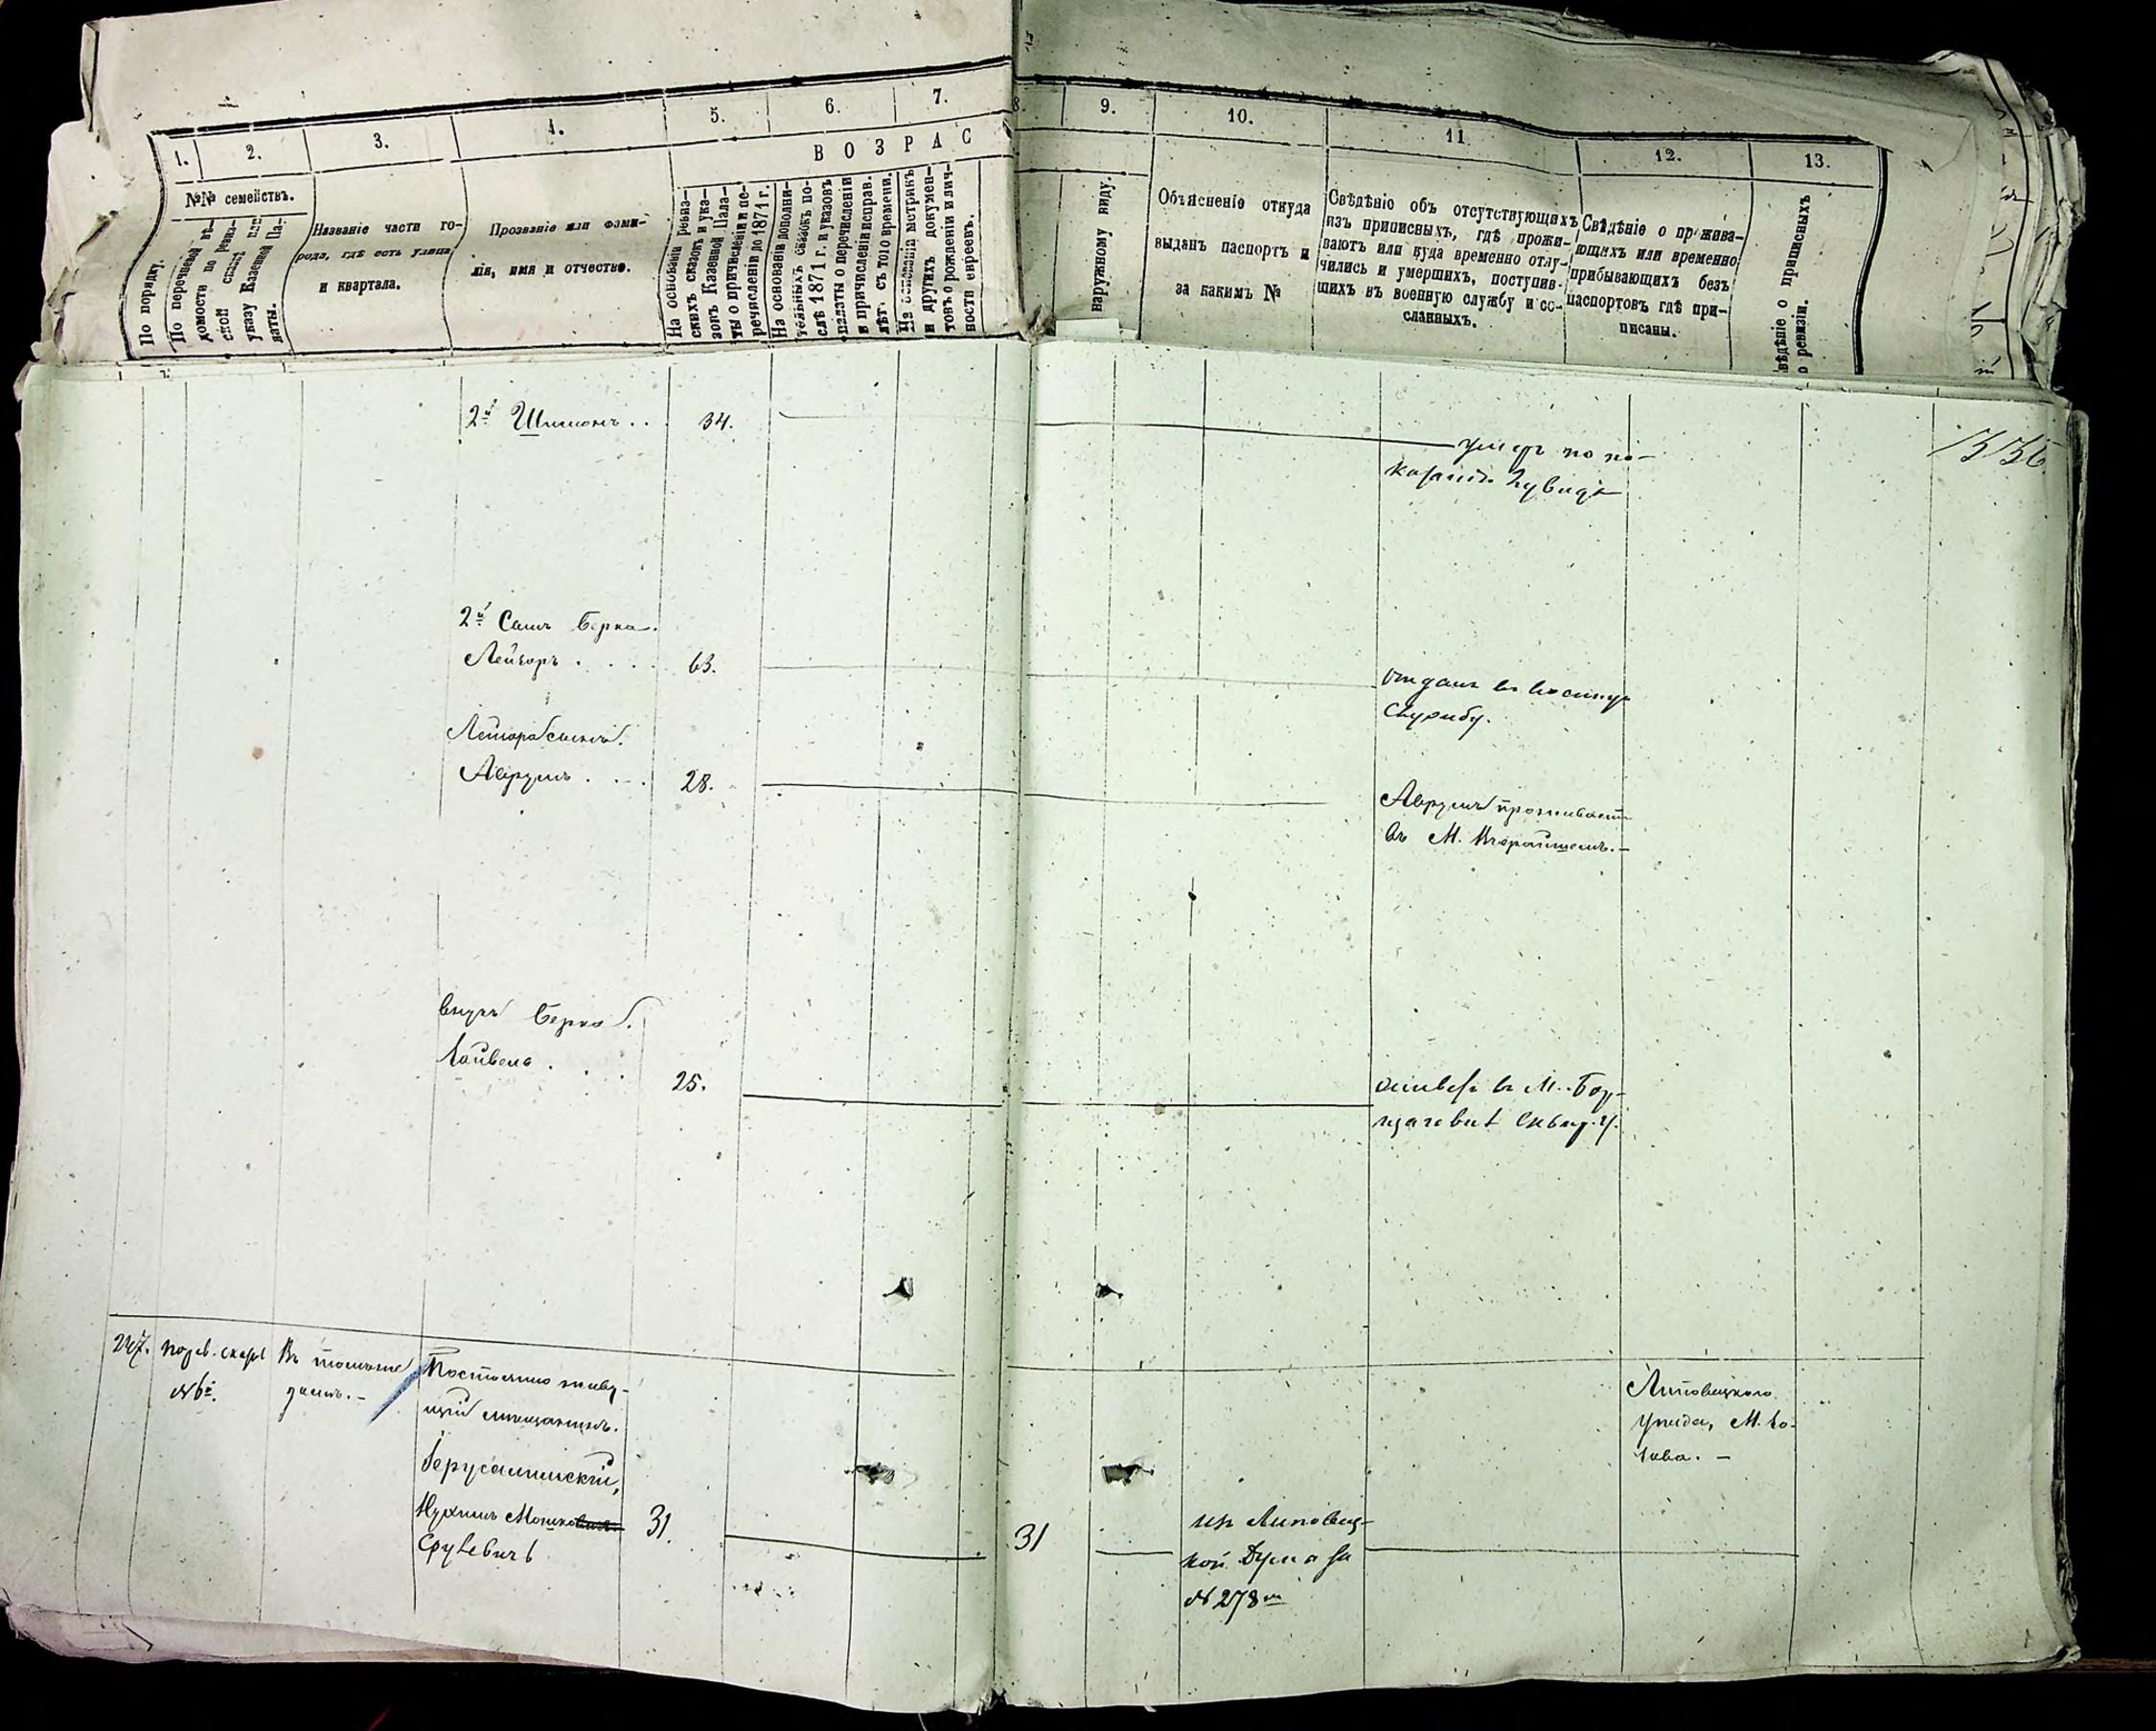 1.
2.
3.
4.
5.
6.
7.
8.
9.
10.
11.
12.
13.
ВОЗРАС
№№ семействъ.
По порядку.
По перечневой вѣ-
домости по реви-
ской сказкѣ или
указу Казенной Па-
латы.
Названіе части го-
рода, гдѣ есть улица
и квартала.
Прозваніе или фами-
лія, имя и отчество.
На основаніи ревиз-
скихъ сказокъ и ука-
зовъ Казенной Пала-
ты о причисленіи и пе-
речисленіи до 1871 г.
На основаніи дополни-
тельныхъ сказокъ по-
слѣ 1871 г. и указовъ
палаты о перечисленіи
и причисленіи исправ.
лѣтъ съ того времени.
На основаніи метрикъ
и другихъ докумен-
товъ о рожденіи и лич-
ности евреевъ.
наружному виду.
Объясненіе откуда
выданъ паспортъ и
за какимъ №
Свѣдѣніе объ отсутствующихъ
изъ приписныхъ, гдѣ прожи-
ваютъ или куда временно отлу-
чились и умершихъ, поступив-
шихъ въ военную службу и со-
сланныхъ.
Свѣдѣніе о прожива-
ющихъ или временно
прибывающихъ безъ
паспортовъ гдѣ при-
писаны.
вѣдѣніе о приписныхъ
о ревизіи.
2й Шимонъ . . 34.
умеръ по по-
казанію
2й Сынъ Берка
Лейзоръ . . . . 63.
отданъ въ военную
службу.
Лейзора сынъ
Аврумъ . . . 28.
Аврумъ проживаетъ
въ М. Вчерайшемъ. –
внукъ Берка
Лейвель . . . 25.
въ М.
Сквир. У.
247. по рев. сказкѣ Въ томъ же Постоянно живу-
№ 6й. домѣ. – щій мѣщанинъ.
Іерусалимскій,
Нухимъ Мошко
Срулевичъ
31.
31
изъ Липовец-
кой Думы за
№ 278м
Липовецкаго
уѣзда, М. Ко-